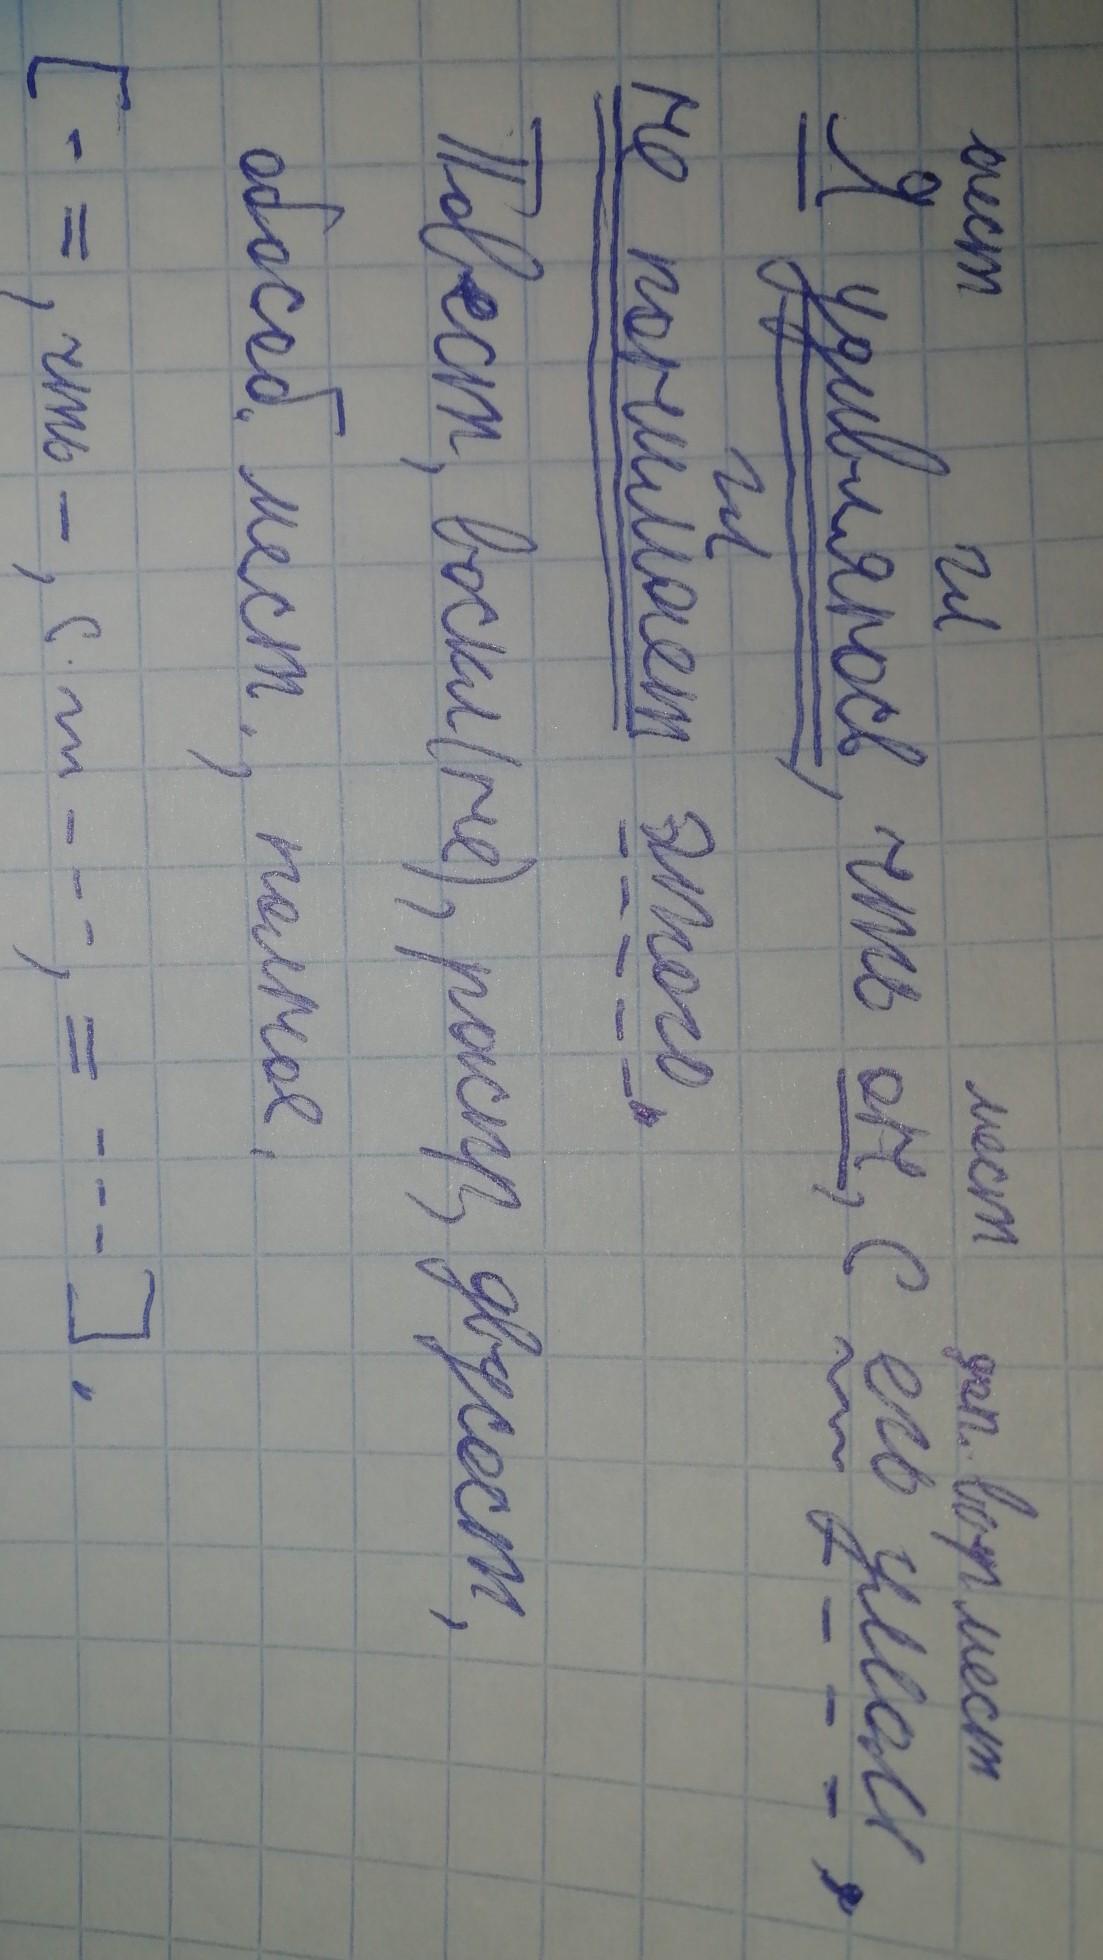 мест гл мест доп. вор мест
Я удивляюсь, что он, с его умом,
гл
не понимает этого.
Повест, воскл(не), распр, двусост,
обособ. мест., полное.
[- =, что –, с ~~ - - -, = - - - ].